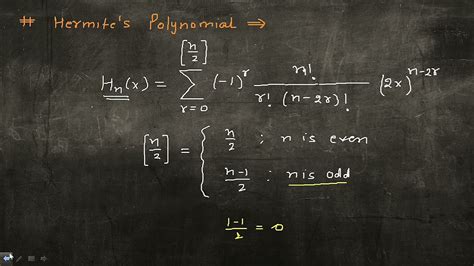 # Hermite's Polynomial ⇒
Hₙ(x) = ∑_{r=0}^{[n/2]} (-1)^r n! / (r! (n-2r)!) (2x)^{n-2r}
[n/2] = { n/2 ; n is even
(n-1)/2 : n is odd
(1-1)/2 = 0